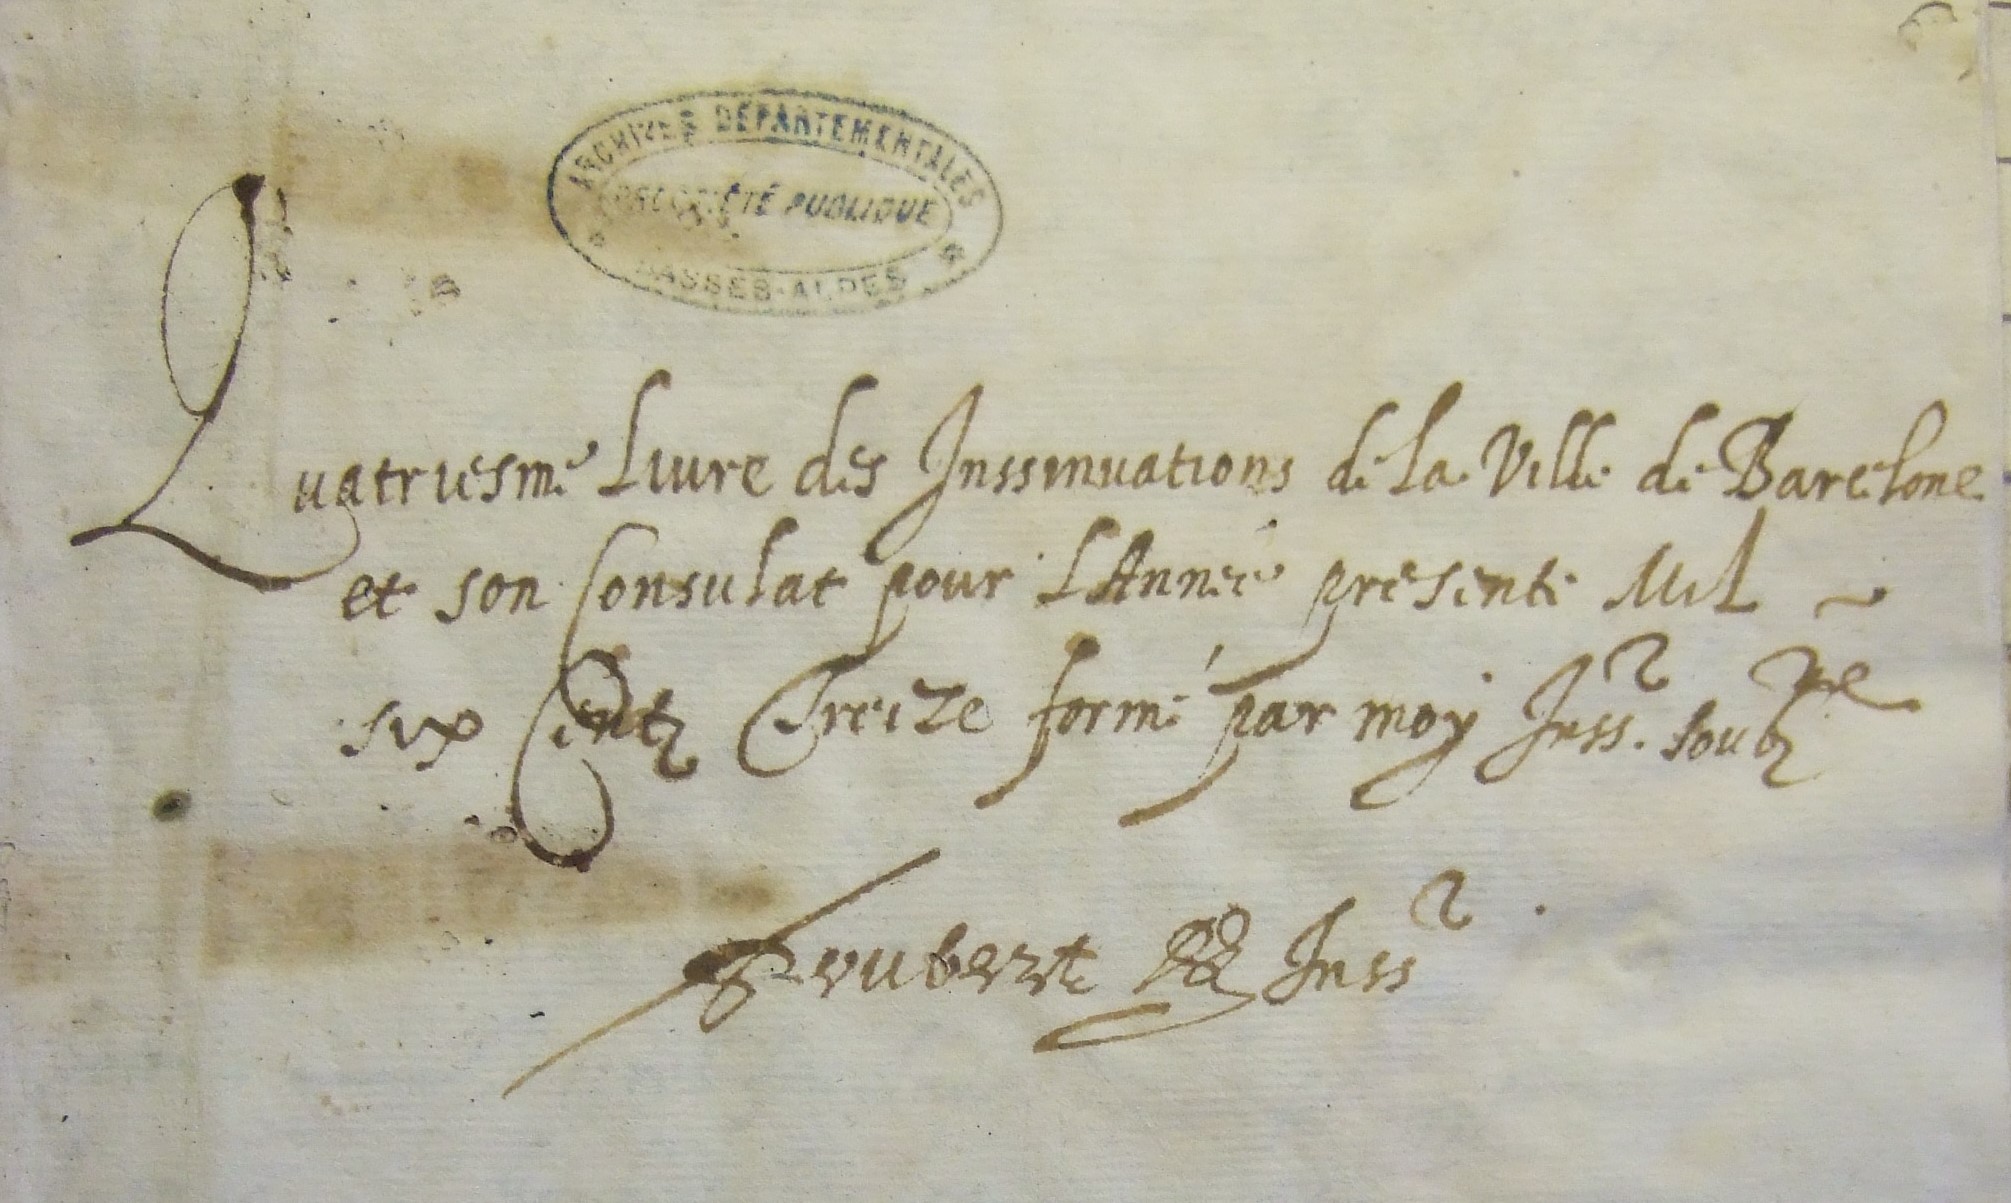 ARCHIVES DEPARTEMENTALES
PROPRIÉTÉ PUBLIQUE
BASSES-ALPES
Quatriesme Livre des Inssinuations de la Ville de Barcelone
et son Consulat pour LAnneé presente Mil
six Centz Treize formé par moy Inssr. soubzne
Inssr